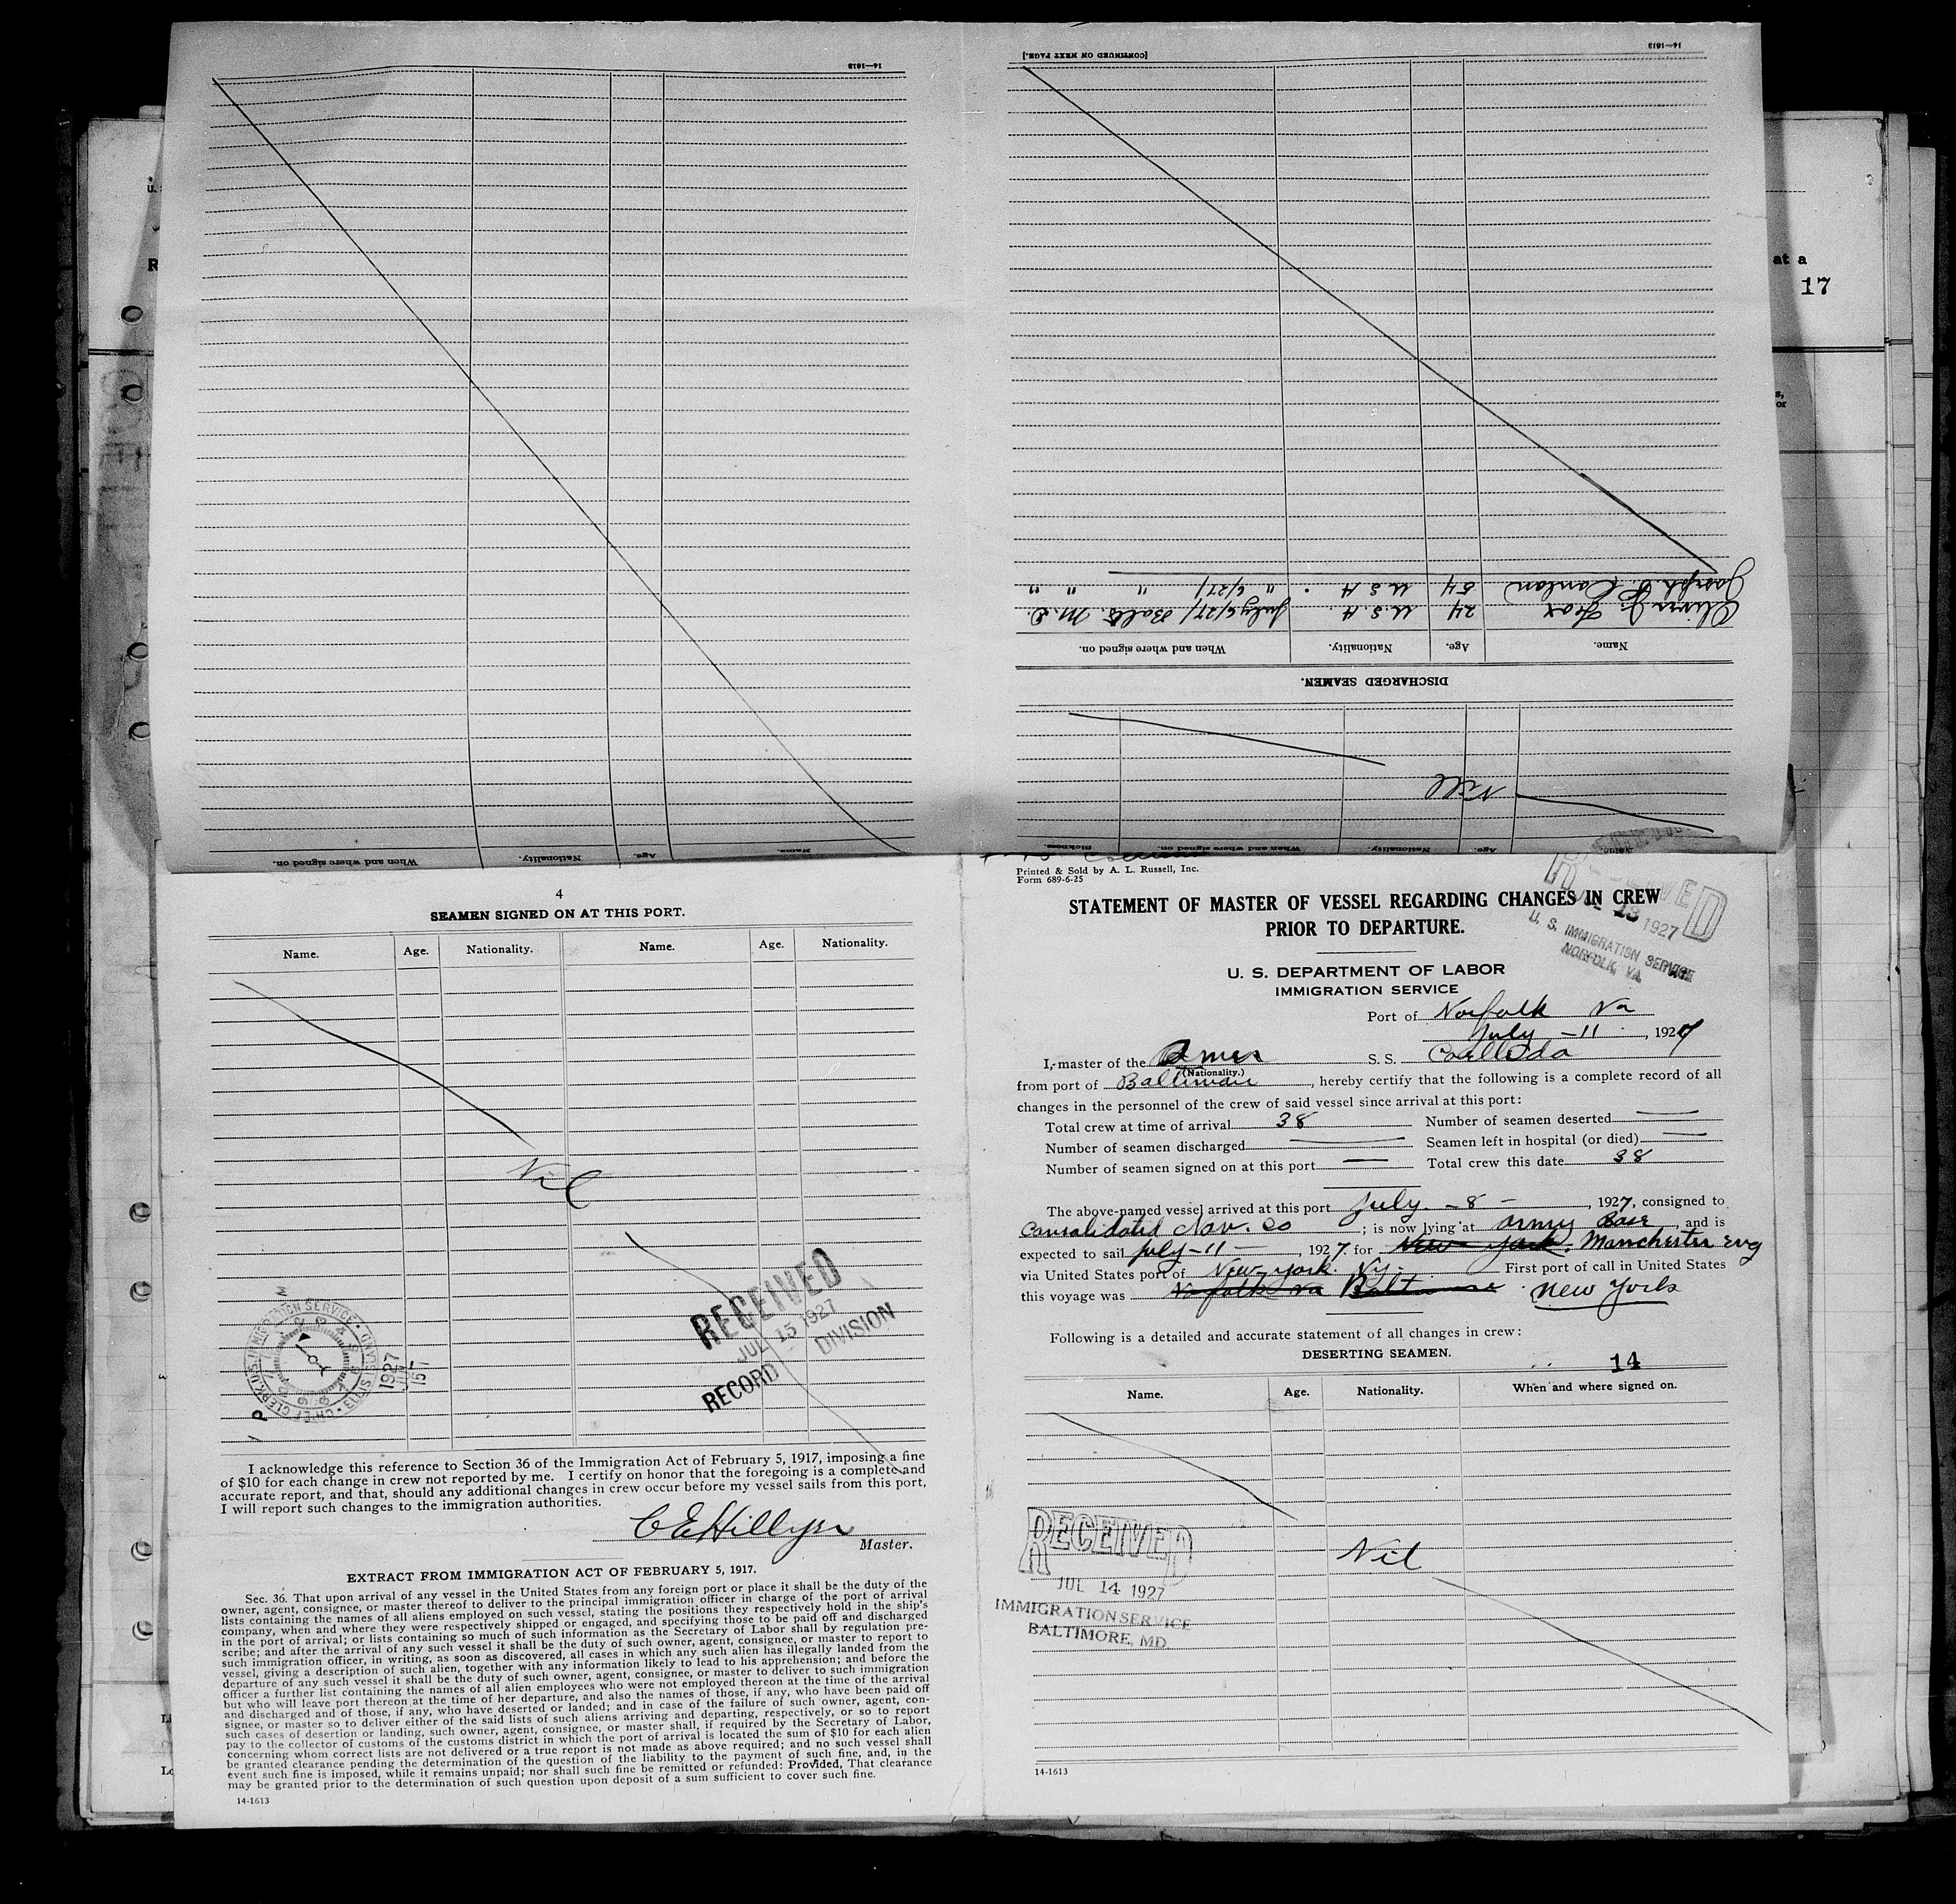 14—1613
[CONTINUED ON NEXT PAGE.]
14—1613
Joseph C. Conlon 54 U.S.A. " 6/27/ " " "
Oliver J. Fox 24 U.S.A. July 6/27/ Balt. M.D.
Name. Age. Nationality. When and where signed on.
DISCHARGED SEAMEN.
Nil
Name. Age. Nationality. When and where signed on.
Name. Age. Nationality. When and where signed on. Sickness.
at a
17
4
SEAMEN SIGNED ON AT THIS PORT.
Name. Age. Nationality. Name. Age. Nationality.
Nil
RECEIVED
JUL 15 1927
RECORD DIVISION
CHIEF CLERK U.S. IMMIGRATION SERVICE
1927
JUL
15
I acknowledge this reference to Section 36 of the Immigration Act of February 5, 1917, imposing a fine
of $10 for each change in crew not reported by me. I certify on honor that the foregoing is a complete and
accurate report, and that, should any additional changes in crew occur before my vessel sails from this port,
I will report such changes to the immigration authorities.
C E Hillyer
Master.
EXTRACT FROM IMMIGRATION ACT OF FEBRUARY 5, 1917.
Sec. 36. That upon arrival of any vessel in the United States from any foreign port or place it shall be the duty of the
owner, agent, consignee, or master thereof to deliver to the principal immigration officer in charge of the port of arrival
lists containing the names of all aliens employed on such vessel, stating the positions they respectively hold in the ship's
company, when and where they were respectively shipped or engaged, and specifying those to be paid off and discharged
in the port of arrival; or lists containing so much of such information as the Secretary of Labor shall by regulation pre-
scribe; and after the arrival of any such vessel it shall be the duty of such owner, agent, consignee, or master to report to
such immigration officer, in writing, as soon as discovered, all cases in which any such alien has illegally landed from the
vessel, giving a description of such alien, together with any information likely to lead to his apprehension; and before the
departure of any such vessel it shall be the duty of such owner, agent, consignee, or master to deliver to such immigration
officer a further list containing the names of all alien employees who were not employed thereon at the time of the arrival
but who will leave port thereon at the time of her departure, and also the names of those, if any, who have been paid off
and discharged and of those, if any, who have deserted or landed; and in case of the failure of such owner, agent, con-
signee, or master so to deliver either of the said lists of such aliens arriving and departing, respectively, or so to report
such cases of desertion or landing, such owner, agent, consignee, or master shall, if required by the Secretary of Labor,
pay to the collector of customs of the customs district in which the port of arrival is located the sum of $10 for each alien
concerning whom correct lists are not delivered or a true report is not made as above required; and no such vessel shall
be granted clearance pending the determination of the question of the liability to the payment of such fine, and, in the
event such fine is imposed, while it remains unpaid; nor shall such fine be remitted or refunded: Provided, That clearance
may be granted prior to the determination of such question upon deposit of a sum sufficient to cover such fine.
14-1613
Printed & Sold by A. L. Russell, Inc.
Form 689-6-25
STATEMENT OF MASTER OF VESSEL REGARDING CHANGES IN CREW
PRIOR TO DEPARTURE.
RECEIVED
JUL 13 1927
U. S. IMMIGRATION SERVICE
NORFOLK, VA.
U. S. DEPARTMENT OF LABOR
IMMIGRATION SERVICE
Port of Norfolk Va
July - 11, 1927
I, master of the Amer S. S.
(Nationality.)
from port of Baltimore, hereby certify that the following is a complete record of all
changes in the personnel of the crew of said vessel since arrival at this port:
Total crew at time of arrival 38 Number of seamen deserted —
Number of seamen discharged — Seamen left in hospital (or died) —
Number of seamen signed on at this port — Total crew this date 38
The above-named vessel arrived at this port July - 8 -, 1927, consigned to
Consolidated Nav. Co; is now lying at Army Base, and is
expected to sail July - 11 -, 1927. for New York. Manchester Eng
via United States port of New York. Ny. First port of call in United States
this voyage was Norfolk Va Baltimore New York
Following is a detailed and accurate statement of all changes in crew:
DESERTING SEAMEN.
14
Name. Age. Nationality. When and where signed on.
Nil
RECEIVED
JUL 14 1927
IMMIGRATION SERVICE
BALTIMORE, MD.
14-1613